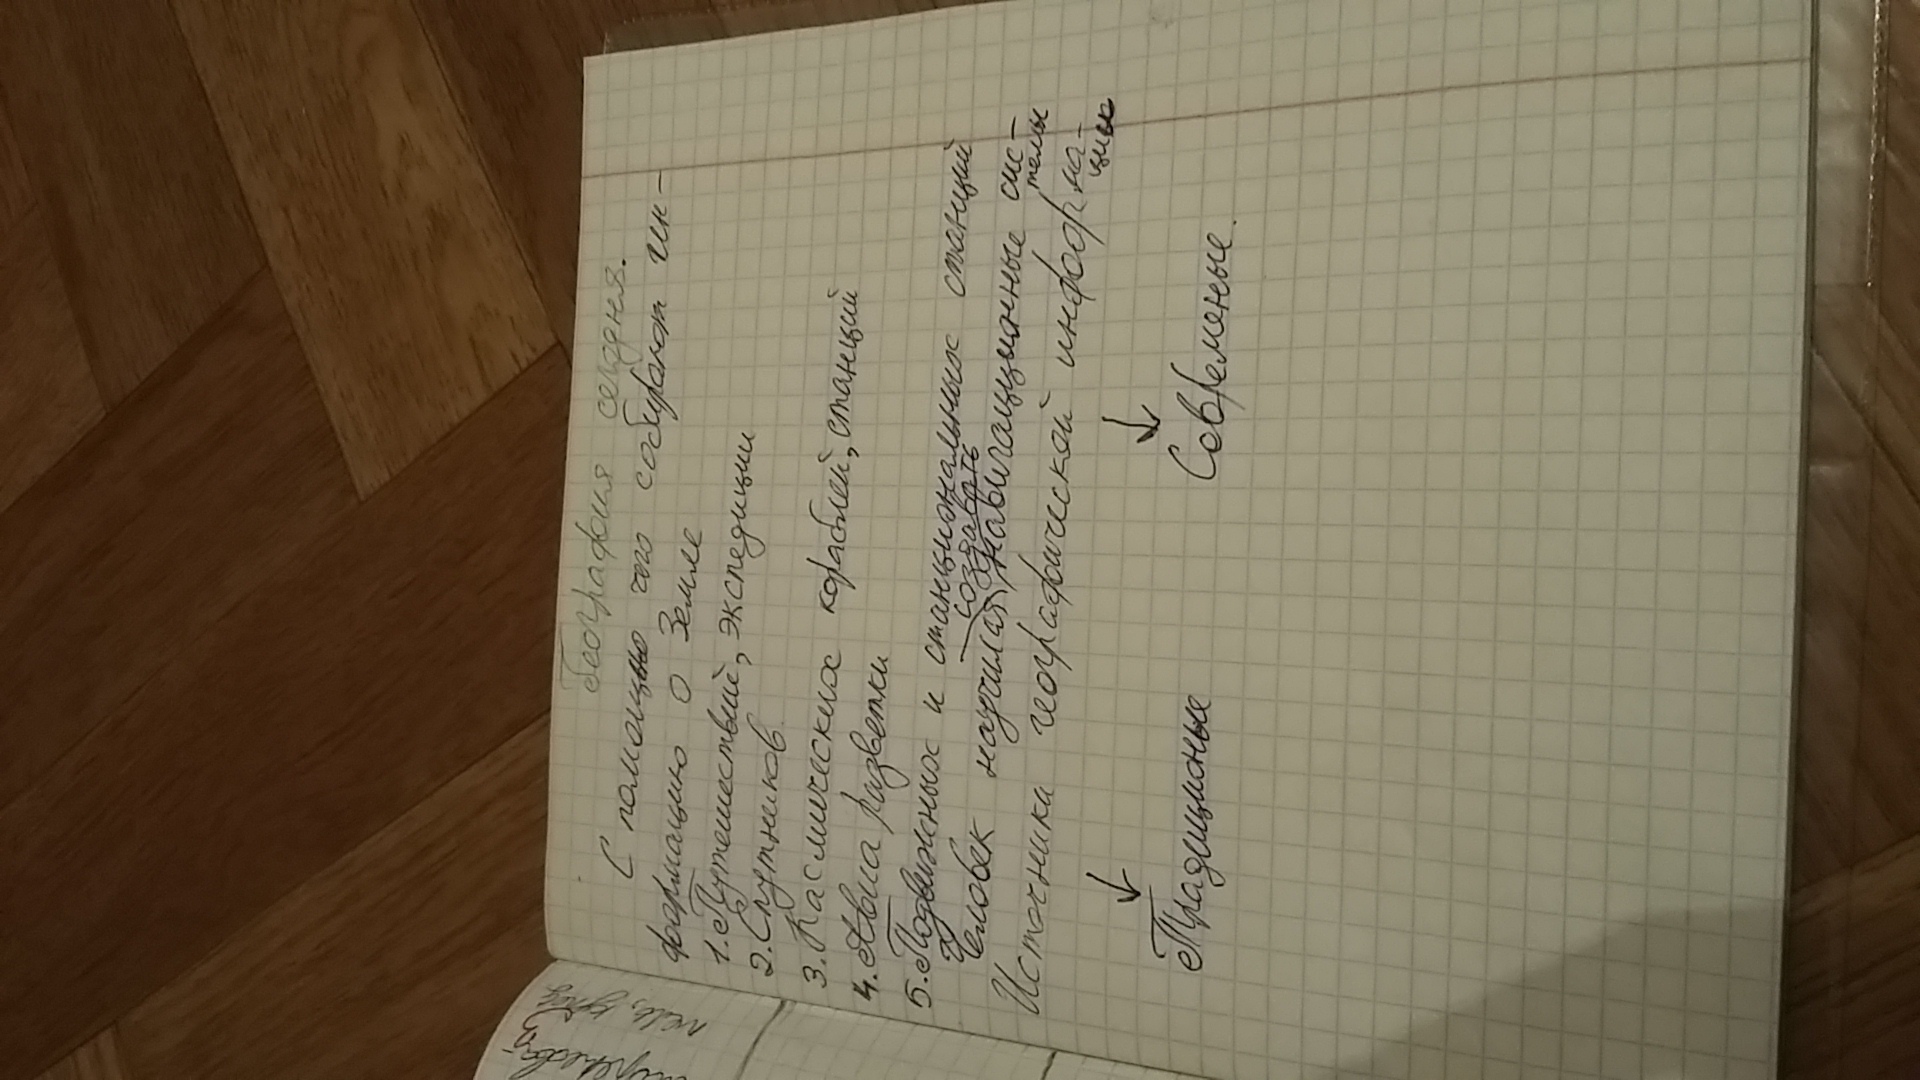 География сегодня.
С помощью чего собирают ин-
формацию о Земле
1. Путешествий, экспедиции
2. Спутников.
3. Касмических кораблей, станций
4. Авиа разветки
5. Подвижных и станциональных станций
создавать
Человек научился навигационные сис-
темы
Источника географической информа-
ции
↓ ↓
Традиционые Современые.